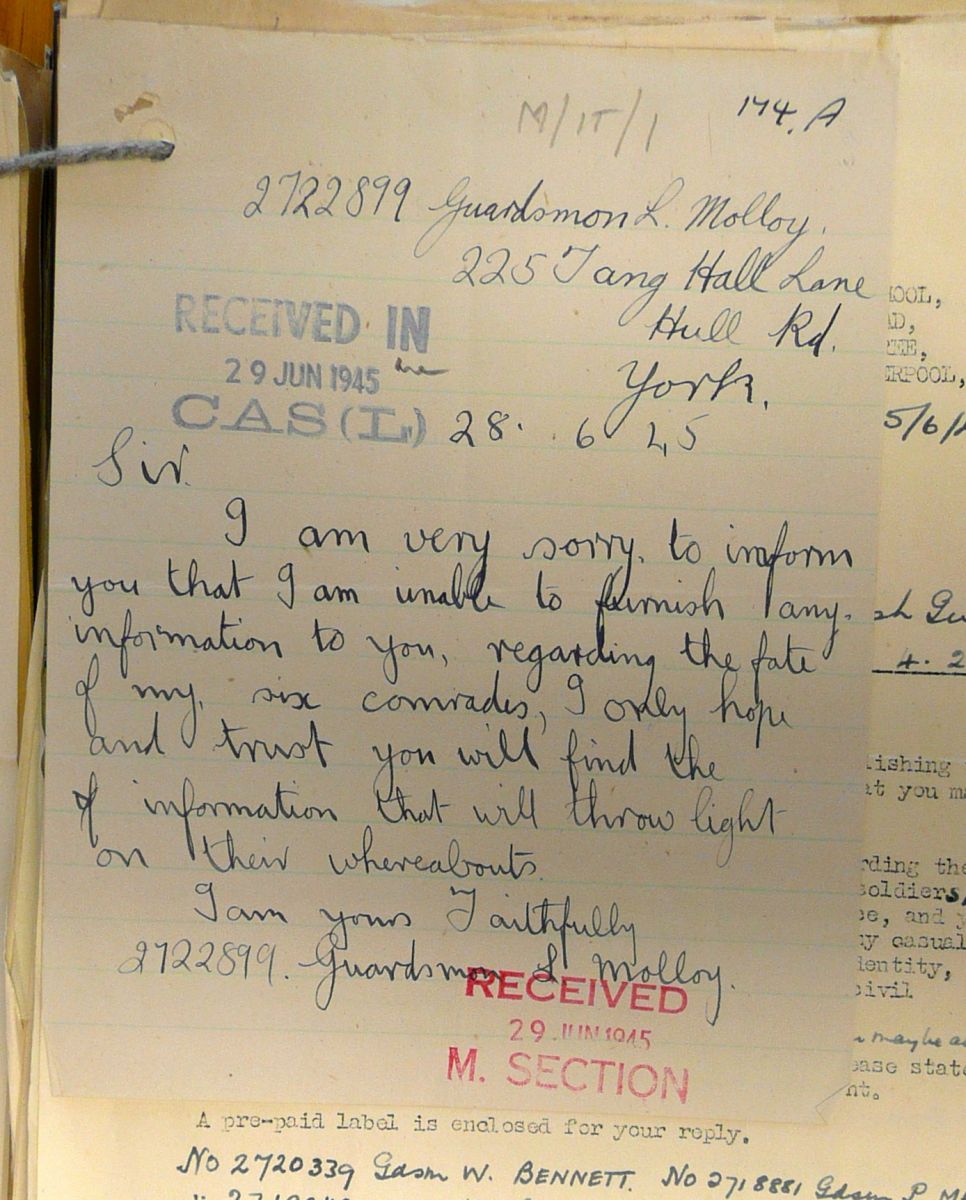 M/IT/1
174. A
2722899 Guardsman L. Molloy.
225 Tang Hall Lane
Hull Rd.
York.
RECEIVED IN
29 JUN 1945
CAS (L)
28. 6 45
Sir.
I am very sorry. to inform
you that I am unable to furnish any.
information to you, regarding the fate
of my, six comrades, I only hope
and trust you will find the
of information that will throw light
on their whereabouts.
I am yours Faithfully
2722899. Guardsman L. Molloy.
RECEIVED
29 JUN 1945
M. SECTION
OOL,
ERPOOL,
5/6/
4. 2
lishing
at you ma
rding the
soldiers,
e, and y
y casual
dentity,
civil
may be a
ease stat
nt.
A pre-paid label is enclosed for your reply.
No 2720339 Gdsm W. BENNETT. No 2718881 Gdsm P. M